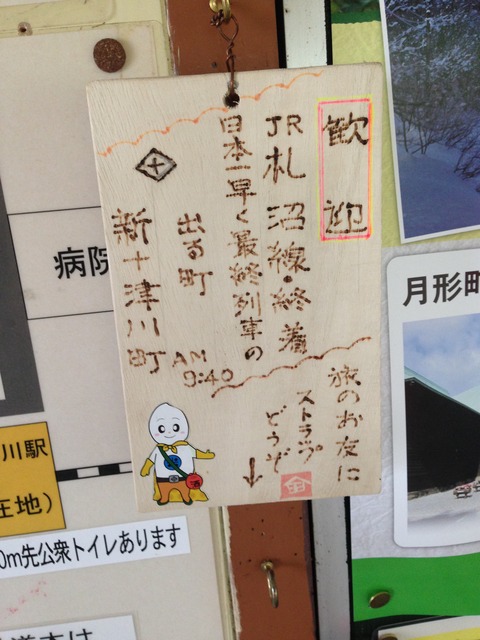 歓迎
JR札沼線・終着
日本一早く最終列車の
出る町
新十津川町
AM
9:40
旅のお友に
ストラップ
どうぞ
↓
病院
川駅
在地)
0m先公衆トイレあります
月形町